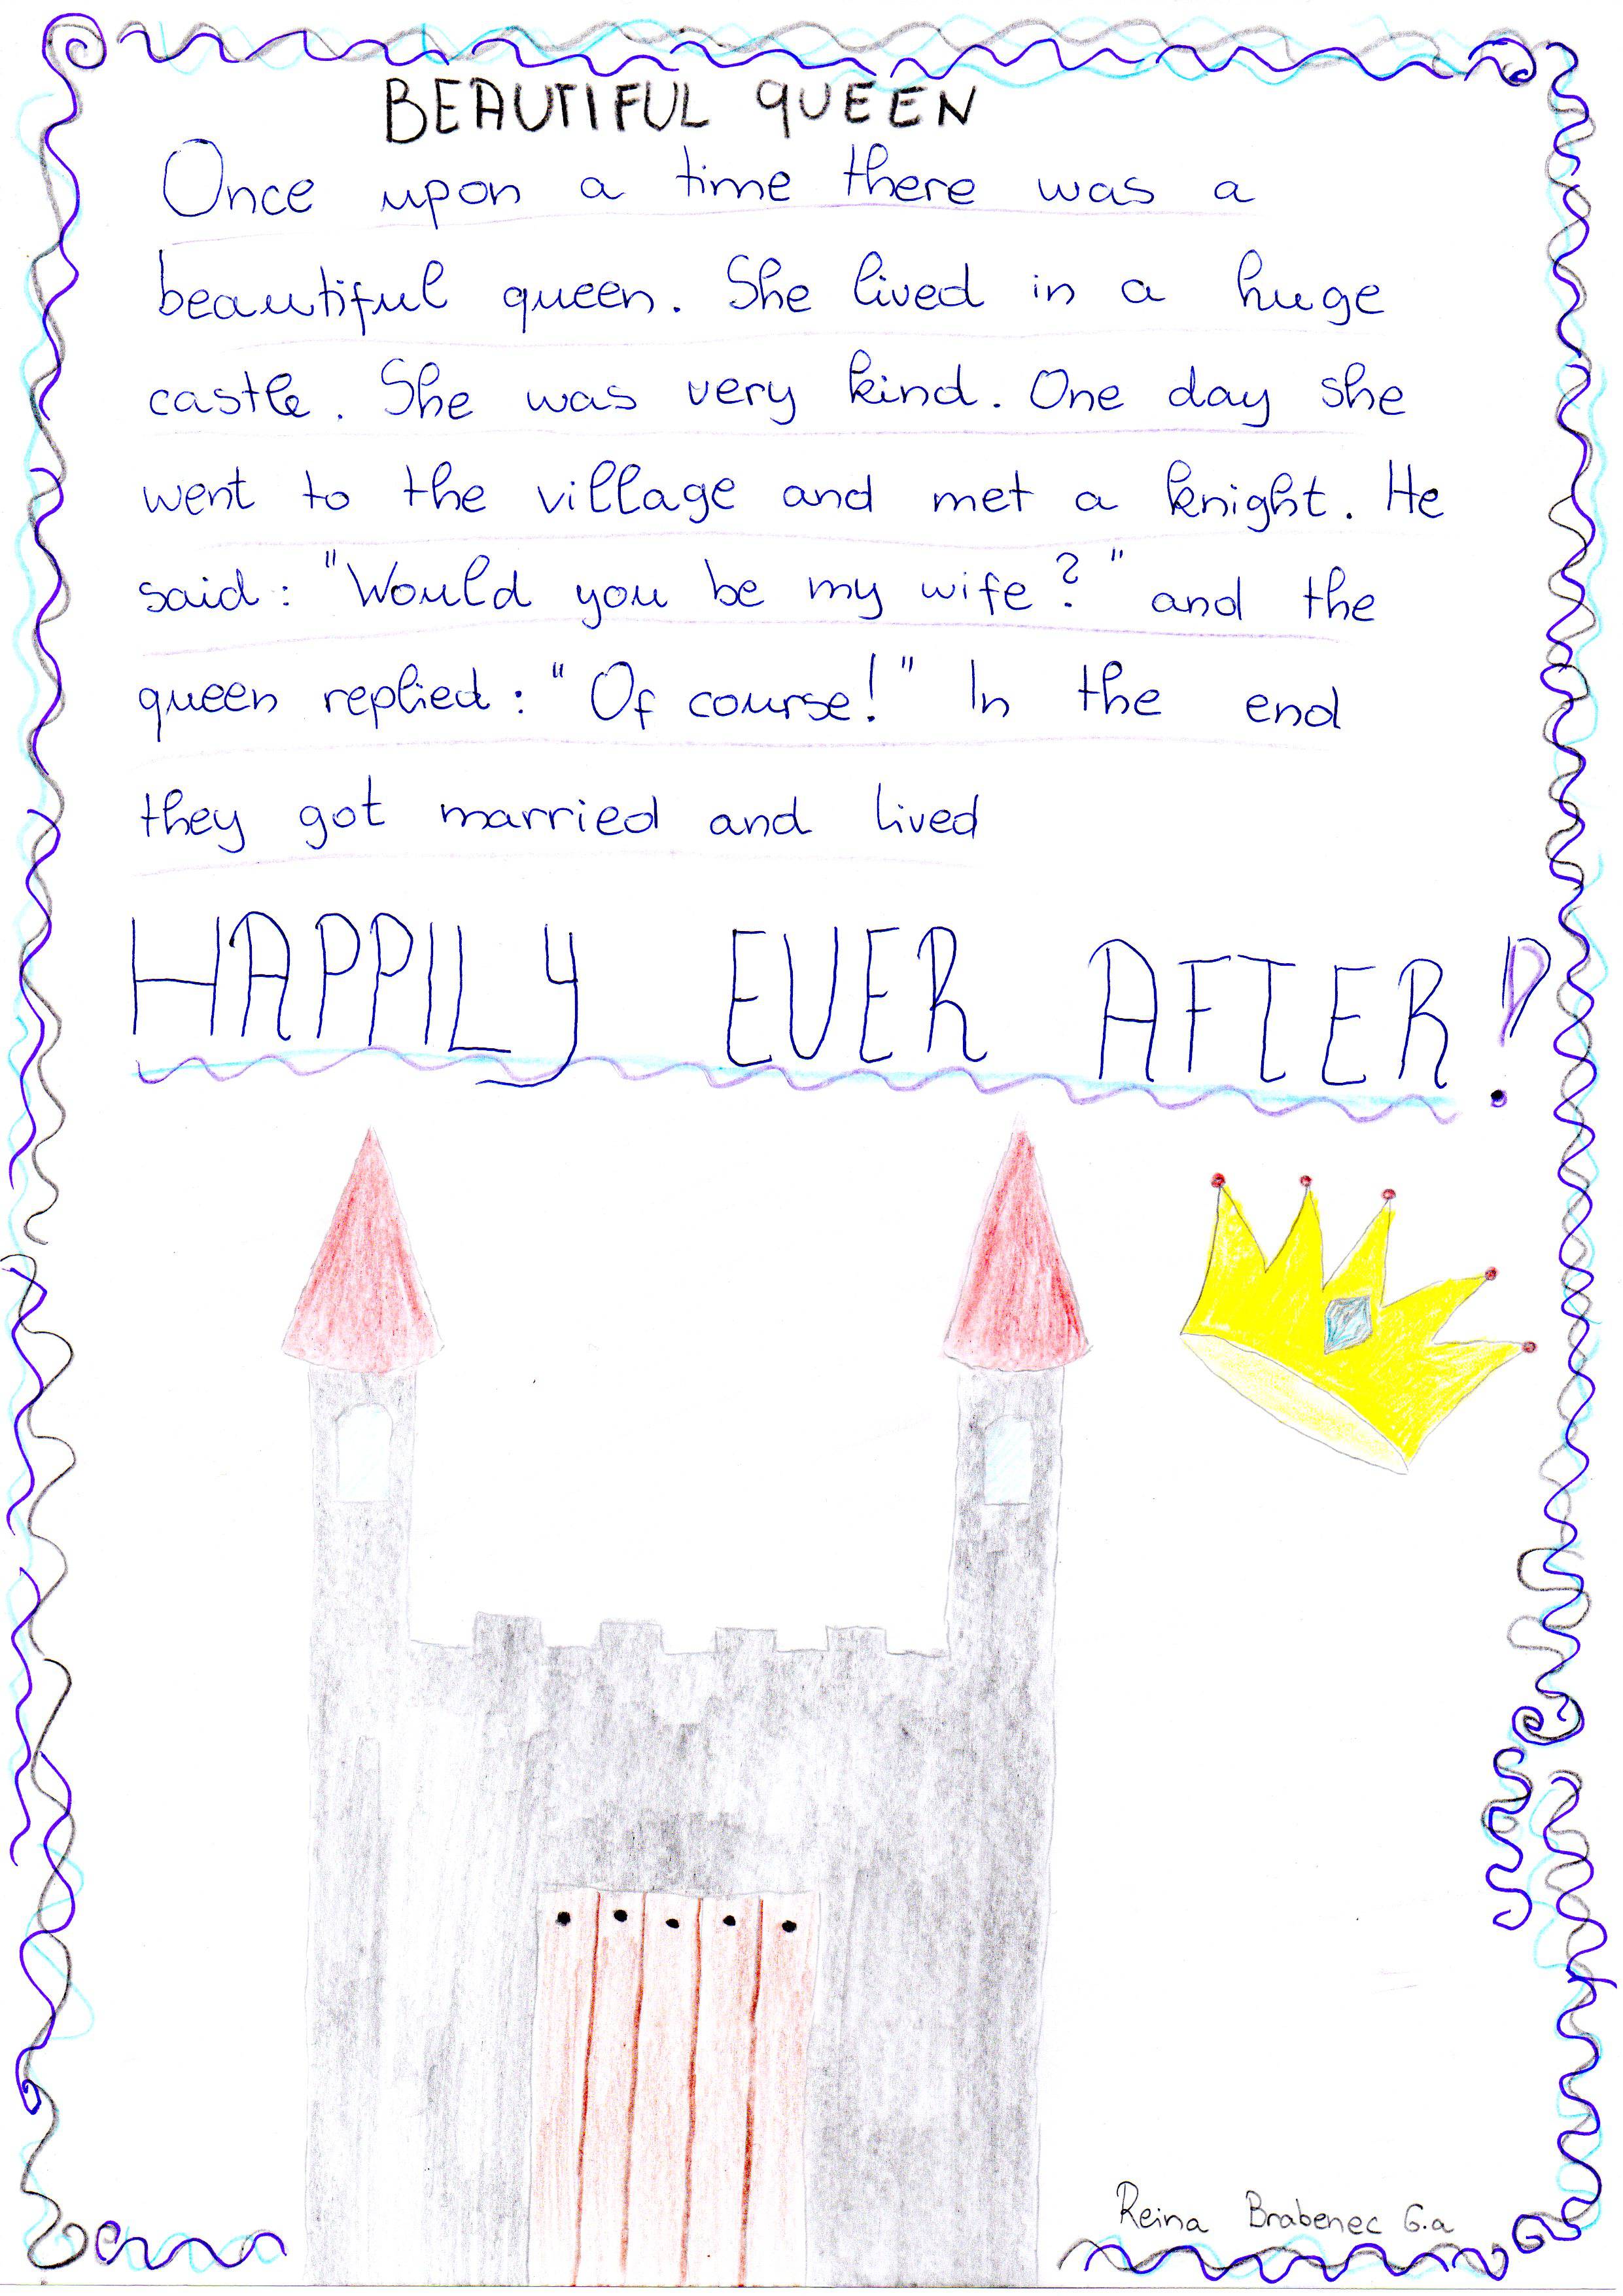 BEAUTIFUL QUEEN
Once upon a time there was a
beautiful queen. She lived in a huge
castle. She was very kind. One day she
went to the village and met a knight. He
said: "Would you be my wife?" and the
queen replied: "Of course!" In the end
they got married and lived
HAPPILY EVER AFTER!
Reina Brabenec 6.a